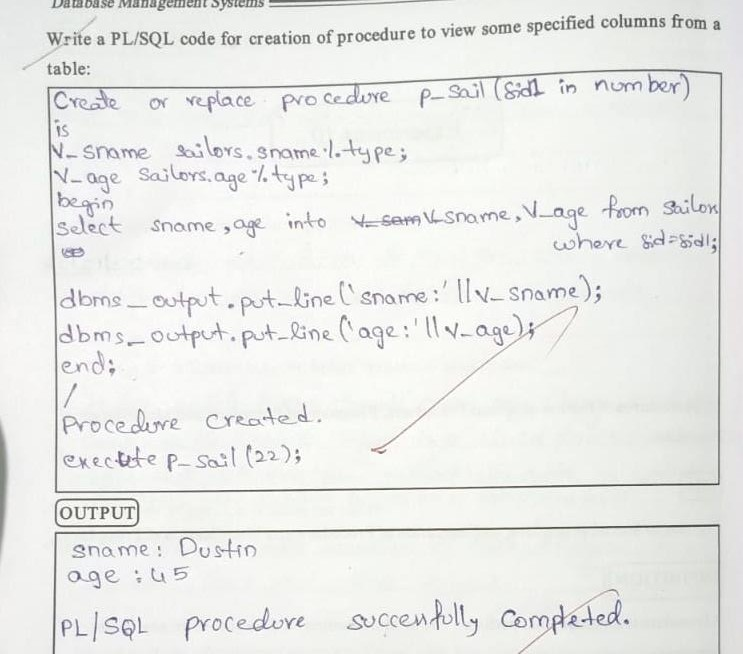 Database Management Systems
Write a PL/SQL code for creation of procedure to view some specified columns from a
table:
Create or replace procedure p_sail (sid1 in number)
is
V_sname sailors.sname%type;
V_age Sailors.age%type;
begin
select sname, age into V_sname, V_age from sailors
where sid=sid1;
dbms_output.put_line('sname:'||v_sname);
dbms_output.put_line('age:'||v_age);
end;
/
Procedure created.
execute p_sail (22);
OUTPUT
sname: Dustin
age : 45
PL/SQL procedure succenfully completed.